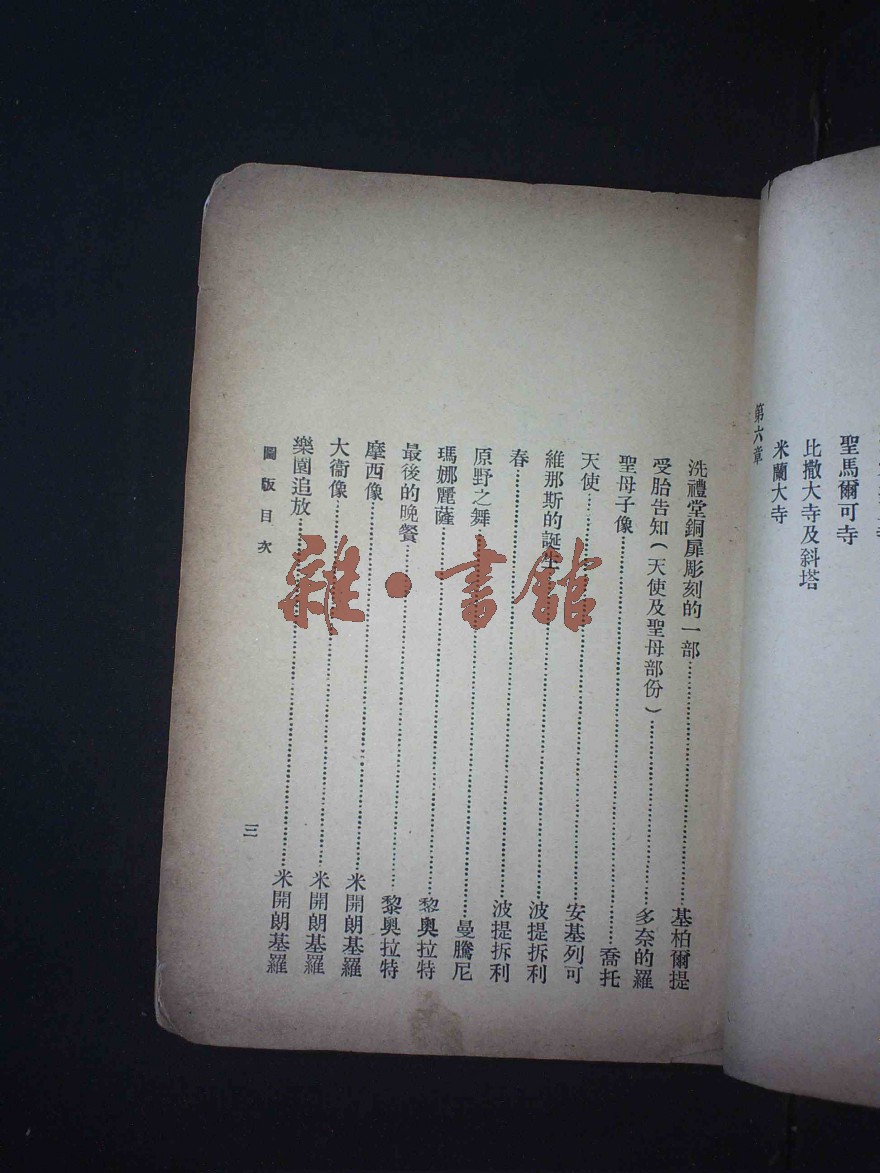 聖馬爾可寺
比撒大寺及斜塔
米蘭大寺
第六章
洗禮堂銅扉彫刻的一部……基柏爾提
受胎告知(天使及聖母部份)……多奈的羅
聖母子像……喬托
天使……安基列可
維那斯的誕生……波提拆利
春……波提拆利
原野之舞……曼騰尼
瑪娜麗薩……黎奥拉特
最後的晚餐……黎奥拉特
摩西像……米開朗基羅
大衞像……米開朗基羅
樂園追放……米開朗基羅
圖版目次
三
雜·書館